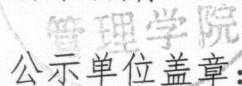 管理学院
公示单位盖章: